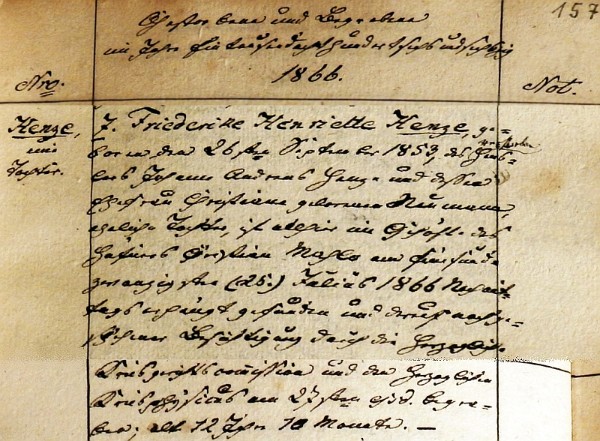 157
Gestorbene und Begrabene
im Jahre Eintausendachthundertsechsundsechzig
1866.
Nro.
Not.
Henze,
eine
Tochter.
7. Friederike Henriette Henze, ge-
boren den 26sten September 1853, des
verstorbenen
lers Johann Andreas Henze und dessen
Ehefrau Christiane geborenen Neumann,
eheliche Tochter, ist allhier im Gehöfte des
Christian am fünfund-
zwanzigsten (25.) Julius 1866 Nachmit-
tags erhängt gefunden und darauf nach ge-
schehener Besichtigung durch die Herzogliche
Kreisgerichtscommission und den Herzoglichen
Kreisphysicus am 27sten ejsd. begra-
ben; alt 12 Jahr 10 Monate. —